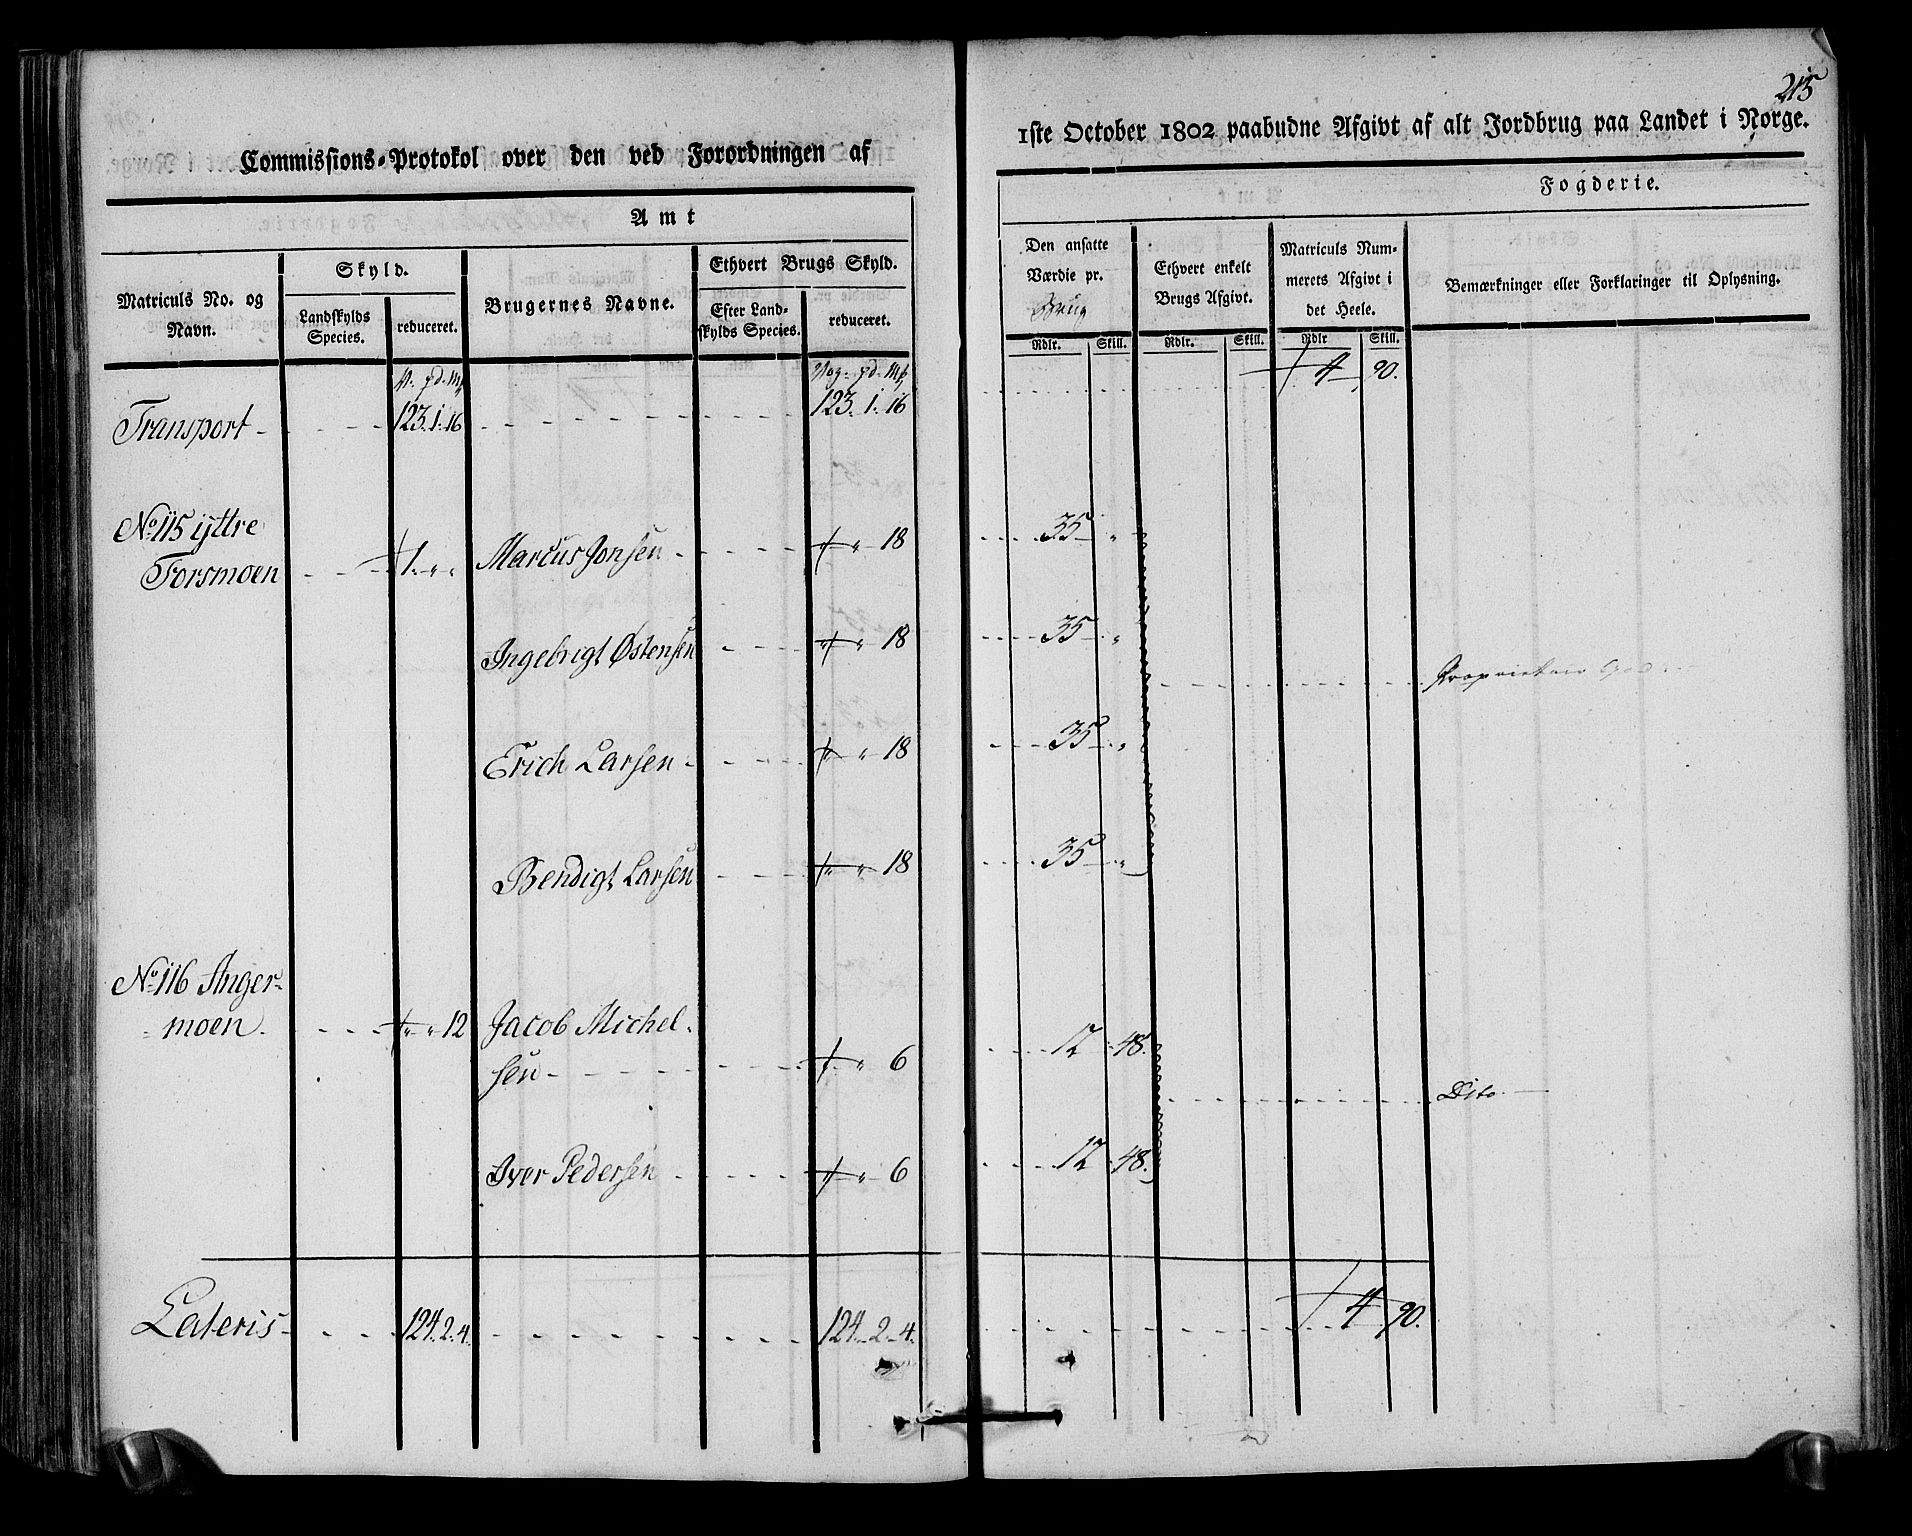 215
Commissions-Protokol over den ved Forordningen af
1ste October 1802 paabudne Afgivt af alt Jordbrug paa Landet i Norge.
Amt
Fogderie.
Matriculs No. og Navn.
Skyld.
Landskylds Species.
reduceret.
Brugernes Navne.
Ethvert Brugs Skyld.
Efter Landskylds Species.
reduceret.
Den ansatte Værdie pr. Brug
Rdlr. Skill.
Ethvert enkelt Brugs Afgivt.
Rdlr. Skill.
Matriculs Nummerets Afgivt i det Heele.
Rdlr Skill.
Bemærkninger eller Forklaringer til Oplysning.
Transport - 123. 1. 16 - 123. 1. 16 - 4 90.
No 115 ÿttre
Forsmoen 1 " " Marcus Jonsen " " 18 35 "
Ingebrigt Østensen " " 18 35 "
Proprietair
Erich Larsen " " 18 35 "
Bendigt Larsen " " 18 35 "
No 116 Anger-
moen " " 12 Jacob Michel-
sen " " 6 12 48.
Dito
Iver Pedersen " " 6 12 48.
Lateris 124. 2. 4. 124. 2. 4. 4 90.